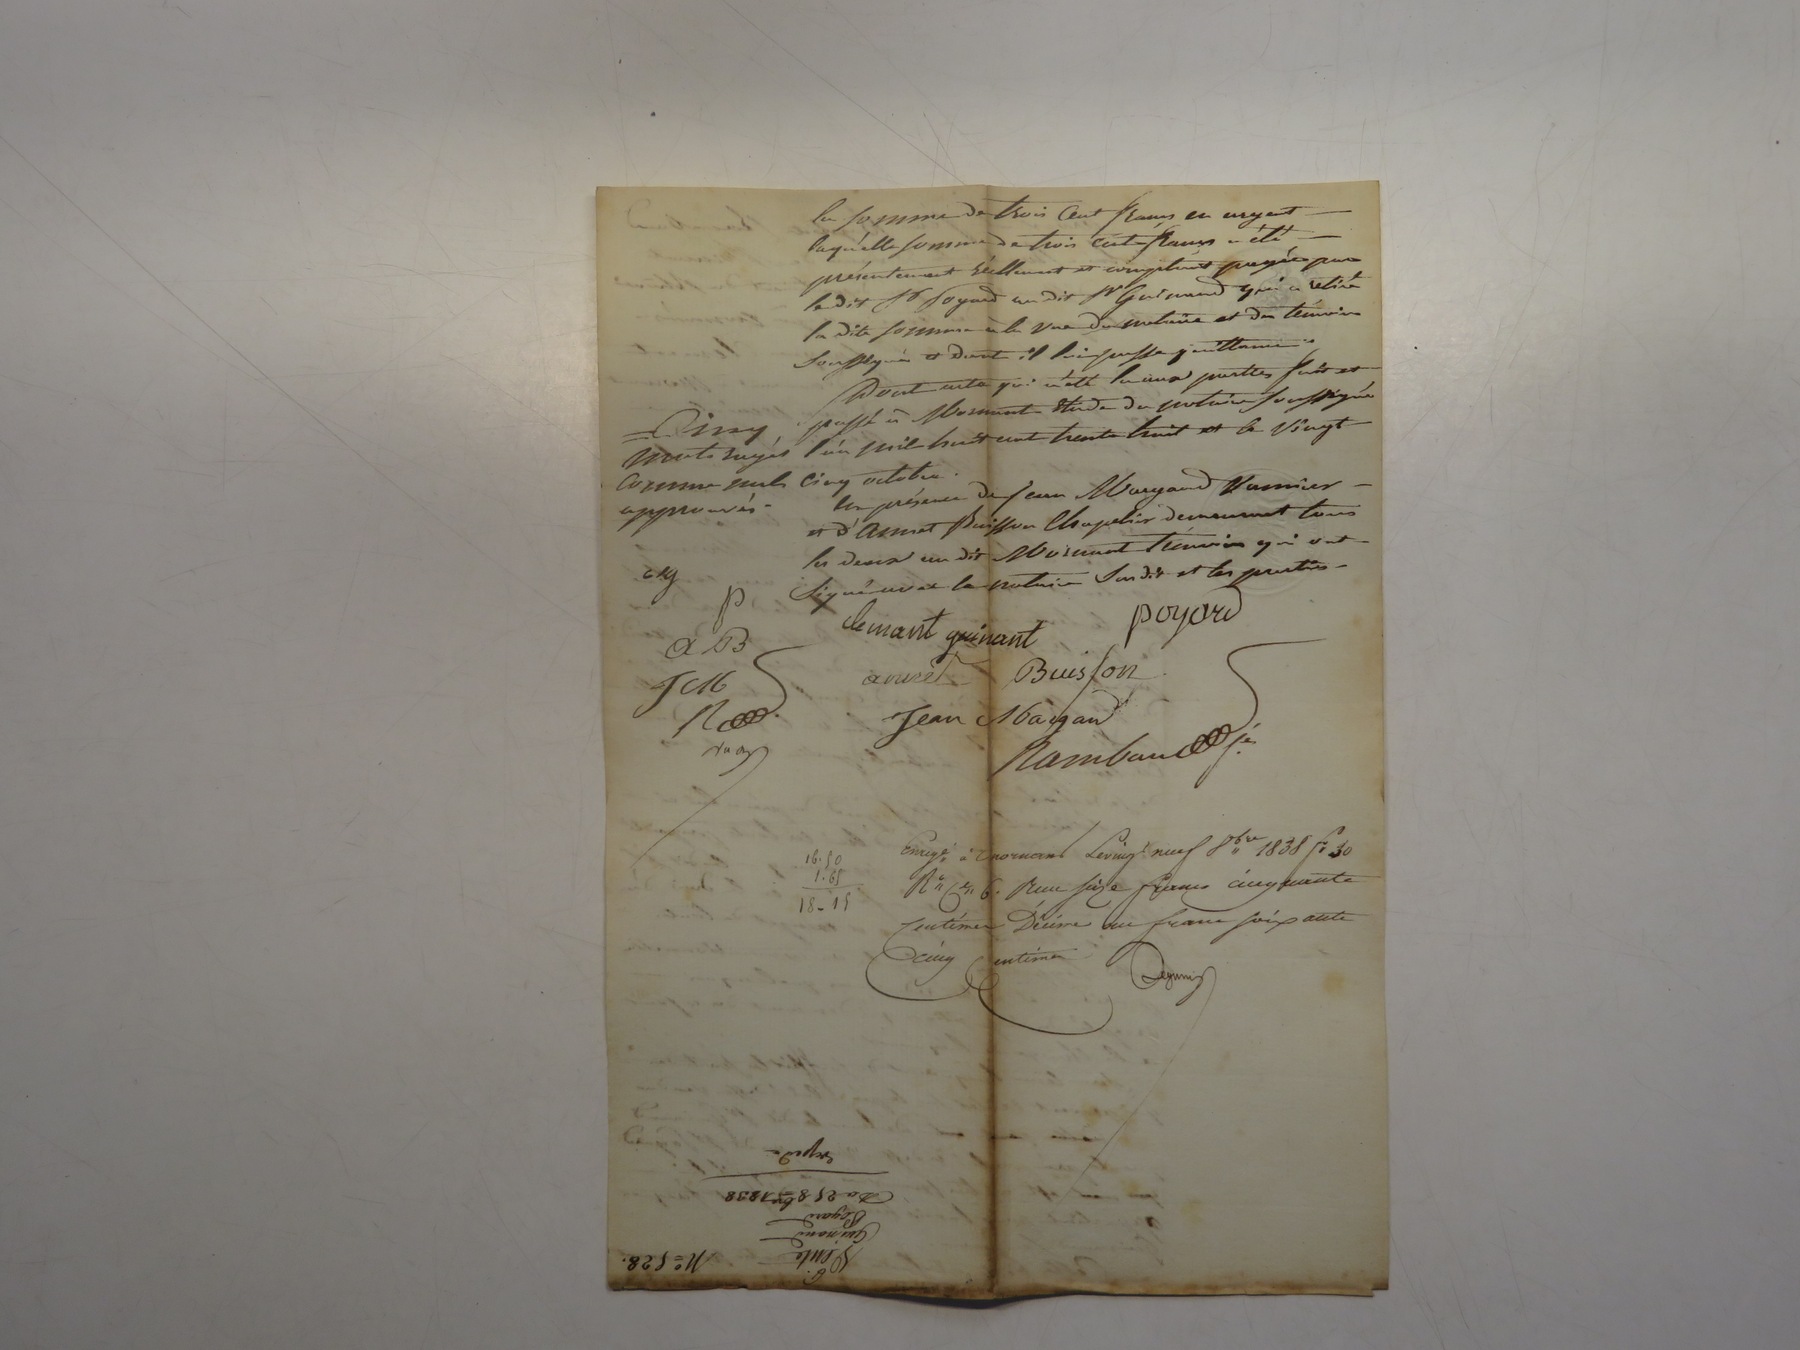 la somme de trois cent francs en argent —
laquelle somme de trois cents francs a été —
présentement réellement et payée par
le dit Sr poyard au dit Sr Guinand qui a retiré
la dite somme à la vue du notaire et des témoins
soussignés et dont il lui passe quittance.
Dont acte qui a été lu aux parties fait et
passé à Mornant étude du notaire soussigné
l'an mil huit cent trente huit et le vingt
cinq octobre.
En présence de Jean Margand —
et d'Annet Buisson Chapelier demeurant tous
les deux au dit Mornant témoins qui ont
signé avec le notaire susdit et les parties —
= Cinq
mots rayés
comme nuls
approuvés -
cg
p
a B
J M
R
clemant guinant
poyard
Buisson
Jean Margand
Rambaud
Enregé à mornant Le vingt neuf 8bre 1838 fo 30
Ro Ces 6. Reçu seize francs cinquante
centimes Décime un franc soixante
cinq centimes
16-50
1-65
18-15
No 528.
6.
Vente
Guinand
Poyard
Du 25 8bre 1838
exped =